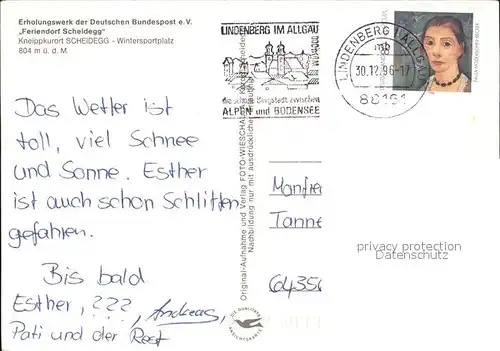 Erholungswerk der Deutschen Bundespost e.V.
„Feriendorf Scheidegg"
Kneippkurort SCHEIDEGG - Wintersportplatz
804 m ü. d. M.
LINDENBERG IM ALLGÄU
die schöne Bergstadt zwischen
ALPEN und BODENSEE
LINDENBERG I ALLGÄU
mb
30.12.96-17
88161
PAULA MODERSOHN-BECKER
Das Wetter ist
toll, viel Schnee
und Sonne. Esther
ist auch schon Schlitten
gefahren.
Bis bald
Esther, ???, Andreas,
Pati und der Rest
Original-Aufnahme und Verlag FOTO-WIESCHA
Nachbildung nur mit ausdrücklicher
DIE QUALITÄTS
ANSICHTSKARTE
Manfre
Tanne
64356
privacy protection
Datenschutz